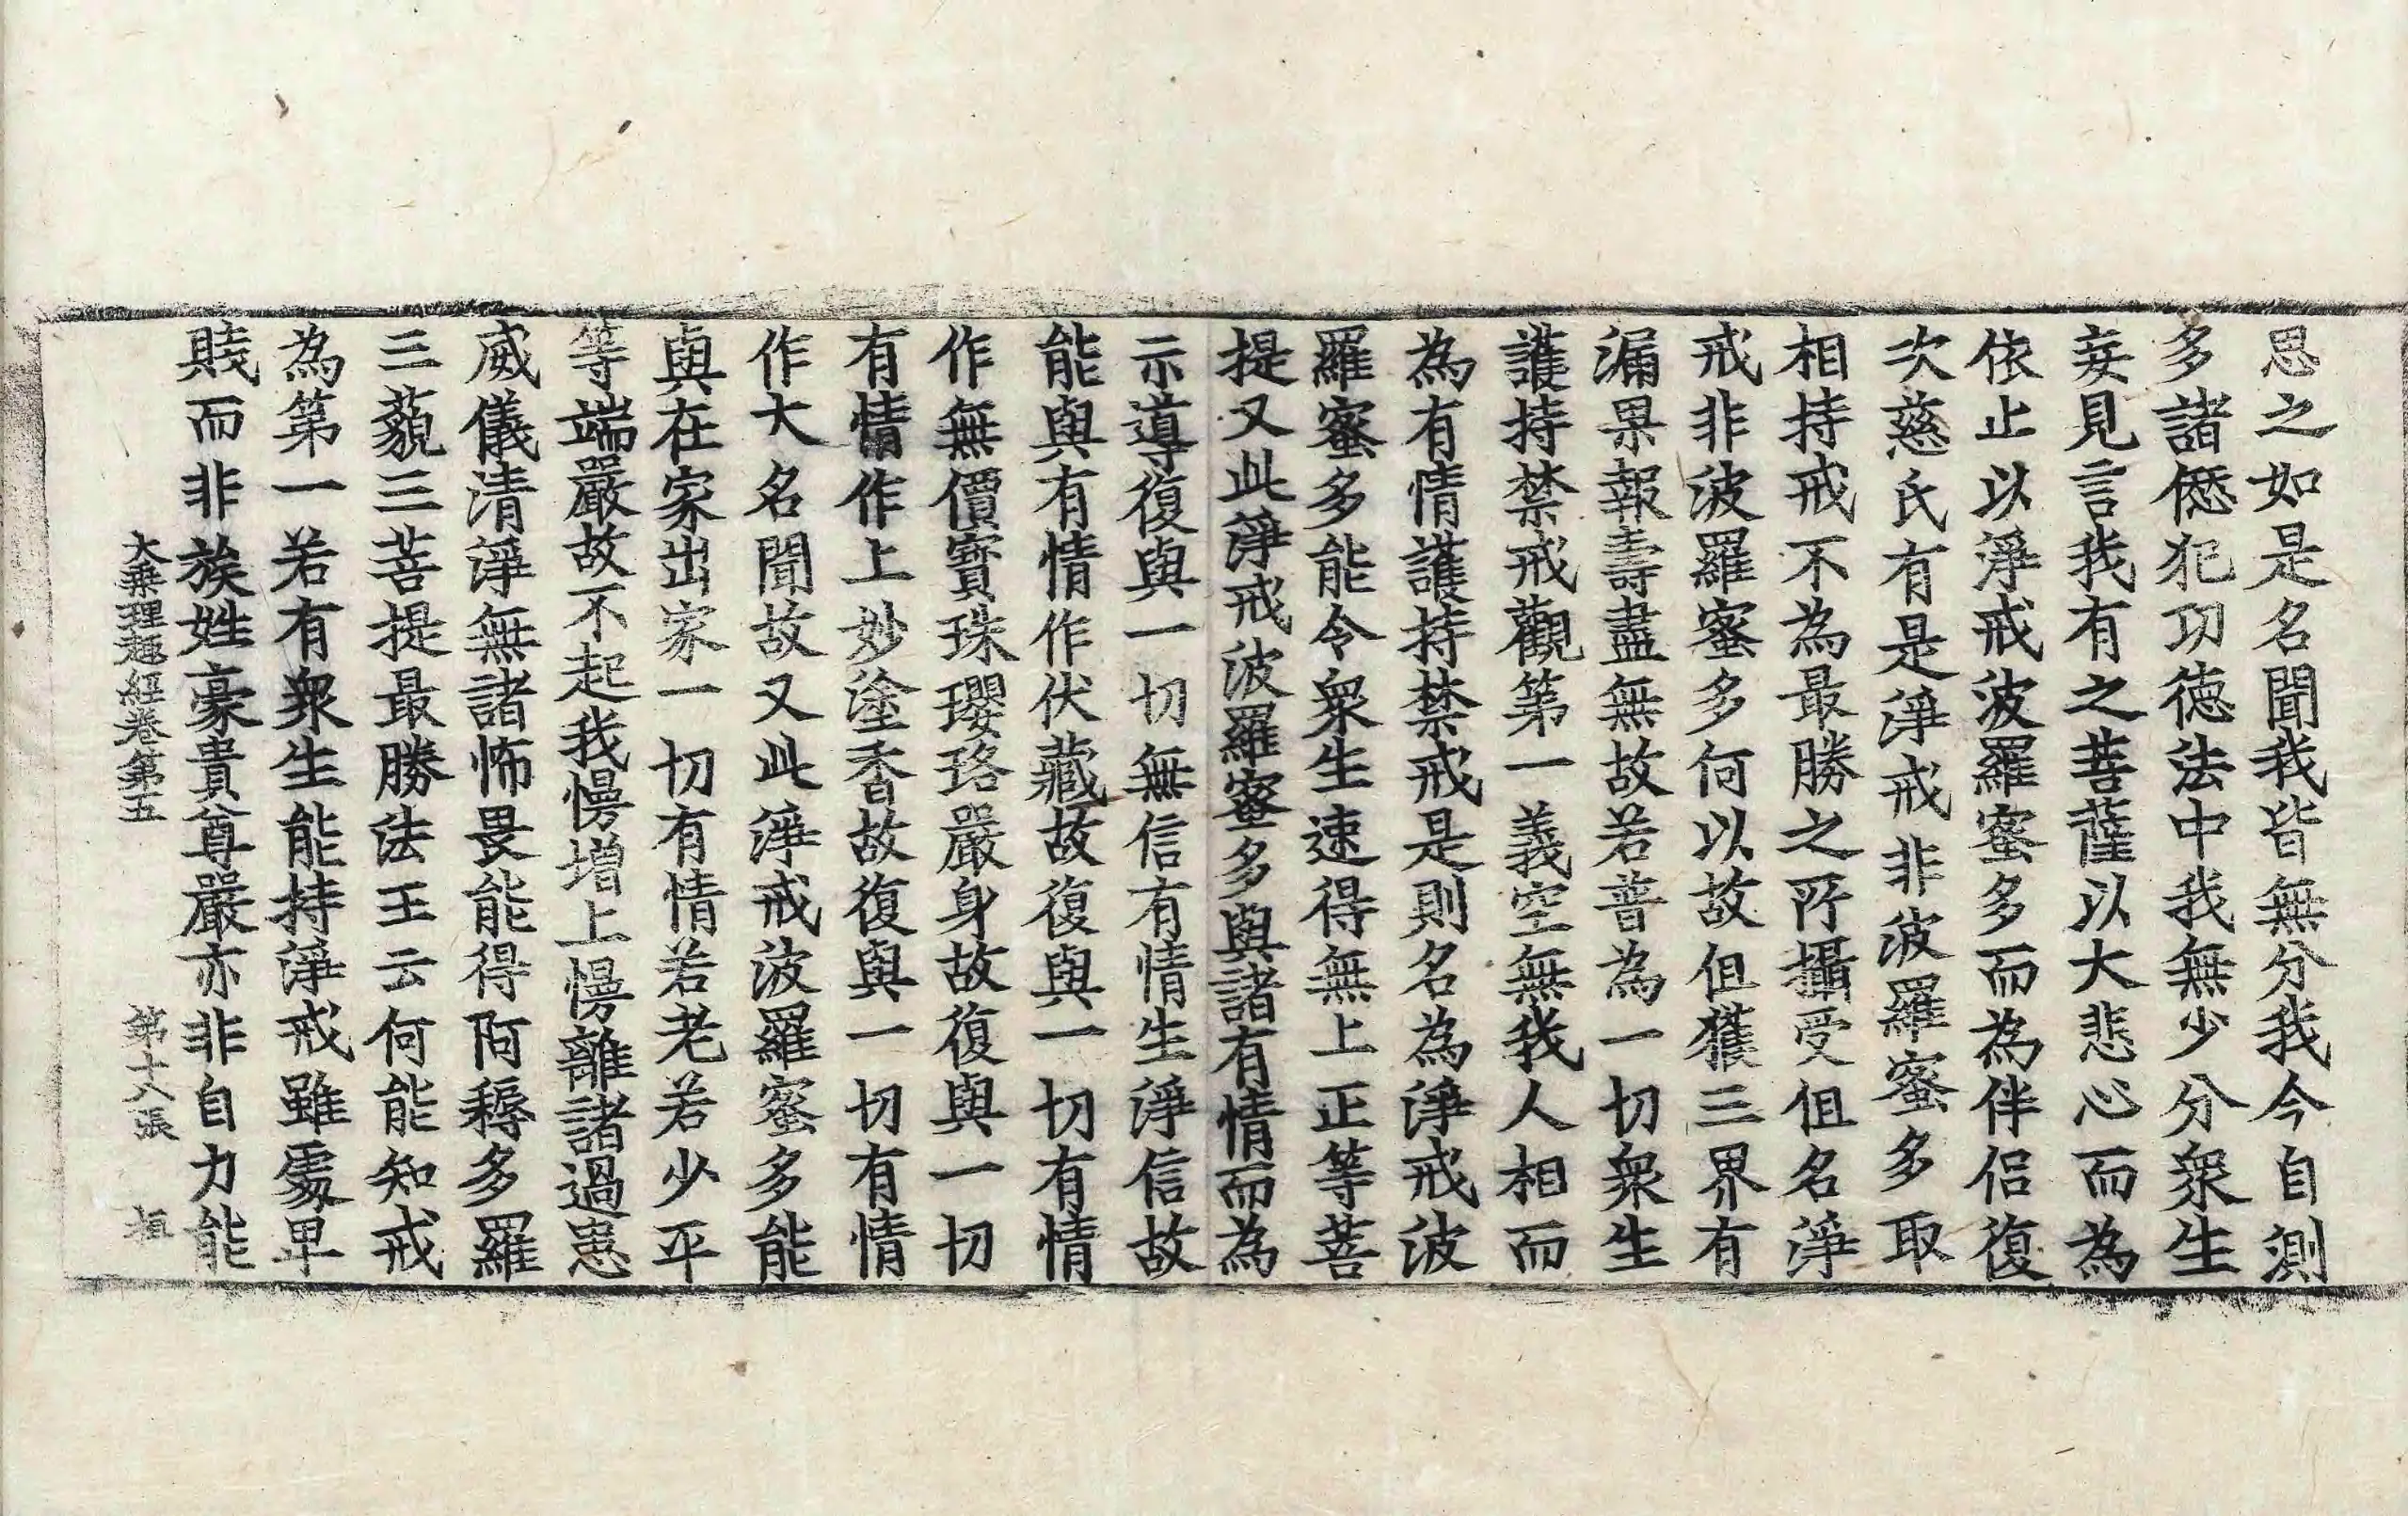 思之如是名聞我皆無分我今自測
多諸僁犯功德法中我無少分衆生
妄見言我有之菩薩以大悲心而為
依止以淨戒波羅蜜多而為伴侣復
次慈氏有是淨戒非波羅蜜多取
相持戒不為最勝之所攝受但名淨
戒非波羅蜜多何以故但獲三界有
漏果報壽盡無故若普為一切衆生
護持禁戒觀第一義空無我人相而
為有情護持禁戒是則名為淨戒波
羅蜜多能令衆生速得無上正等菩
提又此淨戒波羅蜜多與諸有情而為
示導復與一切無信有情生淨信故
能與有情作伏藏故復與一切有情
作無價寶珠瓔珞嚴身故復與一切
有情作上妙塗香故復與一切有情
作大名聞故又此淨戒波羅蜜多能
與在家出家一切有情若老若少平
等端嚴故不起我慢增上慢離諸過患
威儀清淨無諸怖畏能得阿耨多羅
三藐三菩提最勝法王云何能知戒
為第一若有衆生能持淨戒雖處卑
賎而非族姓豪貴尊嚴亦非自力能
大乘理趣經卷第五 第十八張 桓